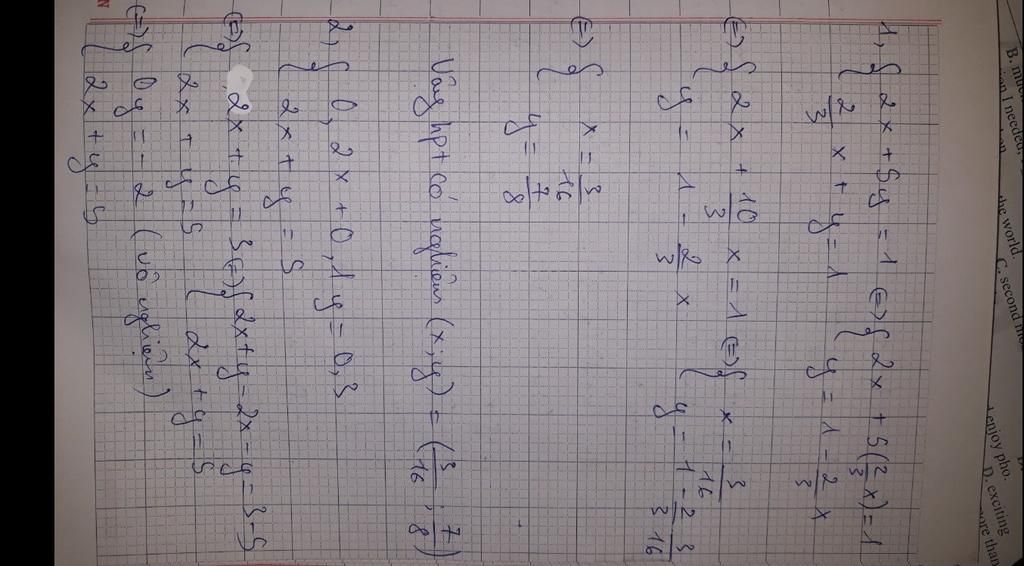 1, { 2x + 5y = 1 (=) { 2x + 5(2/3 x) = 1
2/3 x + y = 1 { y = 1 - 2/3 x
(=) { 2x + 10/3 x = 1 (=) { x = 3/16
y = 1 - 2/3 x { y = 1 - 2/3 3/16
(=) { x = 3/16
y = 7/8
Vậy hpt có nghiệm (x;y) = (3/16 ; 7/8)
2, { 0,2x + 0,1y = 0,3
2x + y = 5
(=) { 2x + y = 3 (=) { 2x + y = 2x - y = 3 - 5
2x + y = 5 { 2x + y = 5
(=) { 0y = -2 (vô nghiệm)
2x + y = 5
B. mu
ion I needed,
the world.
C. second mo
I enjoy pho.
D. exciting
more than